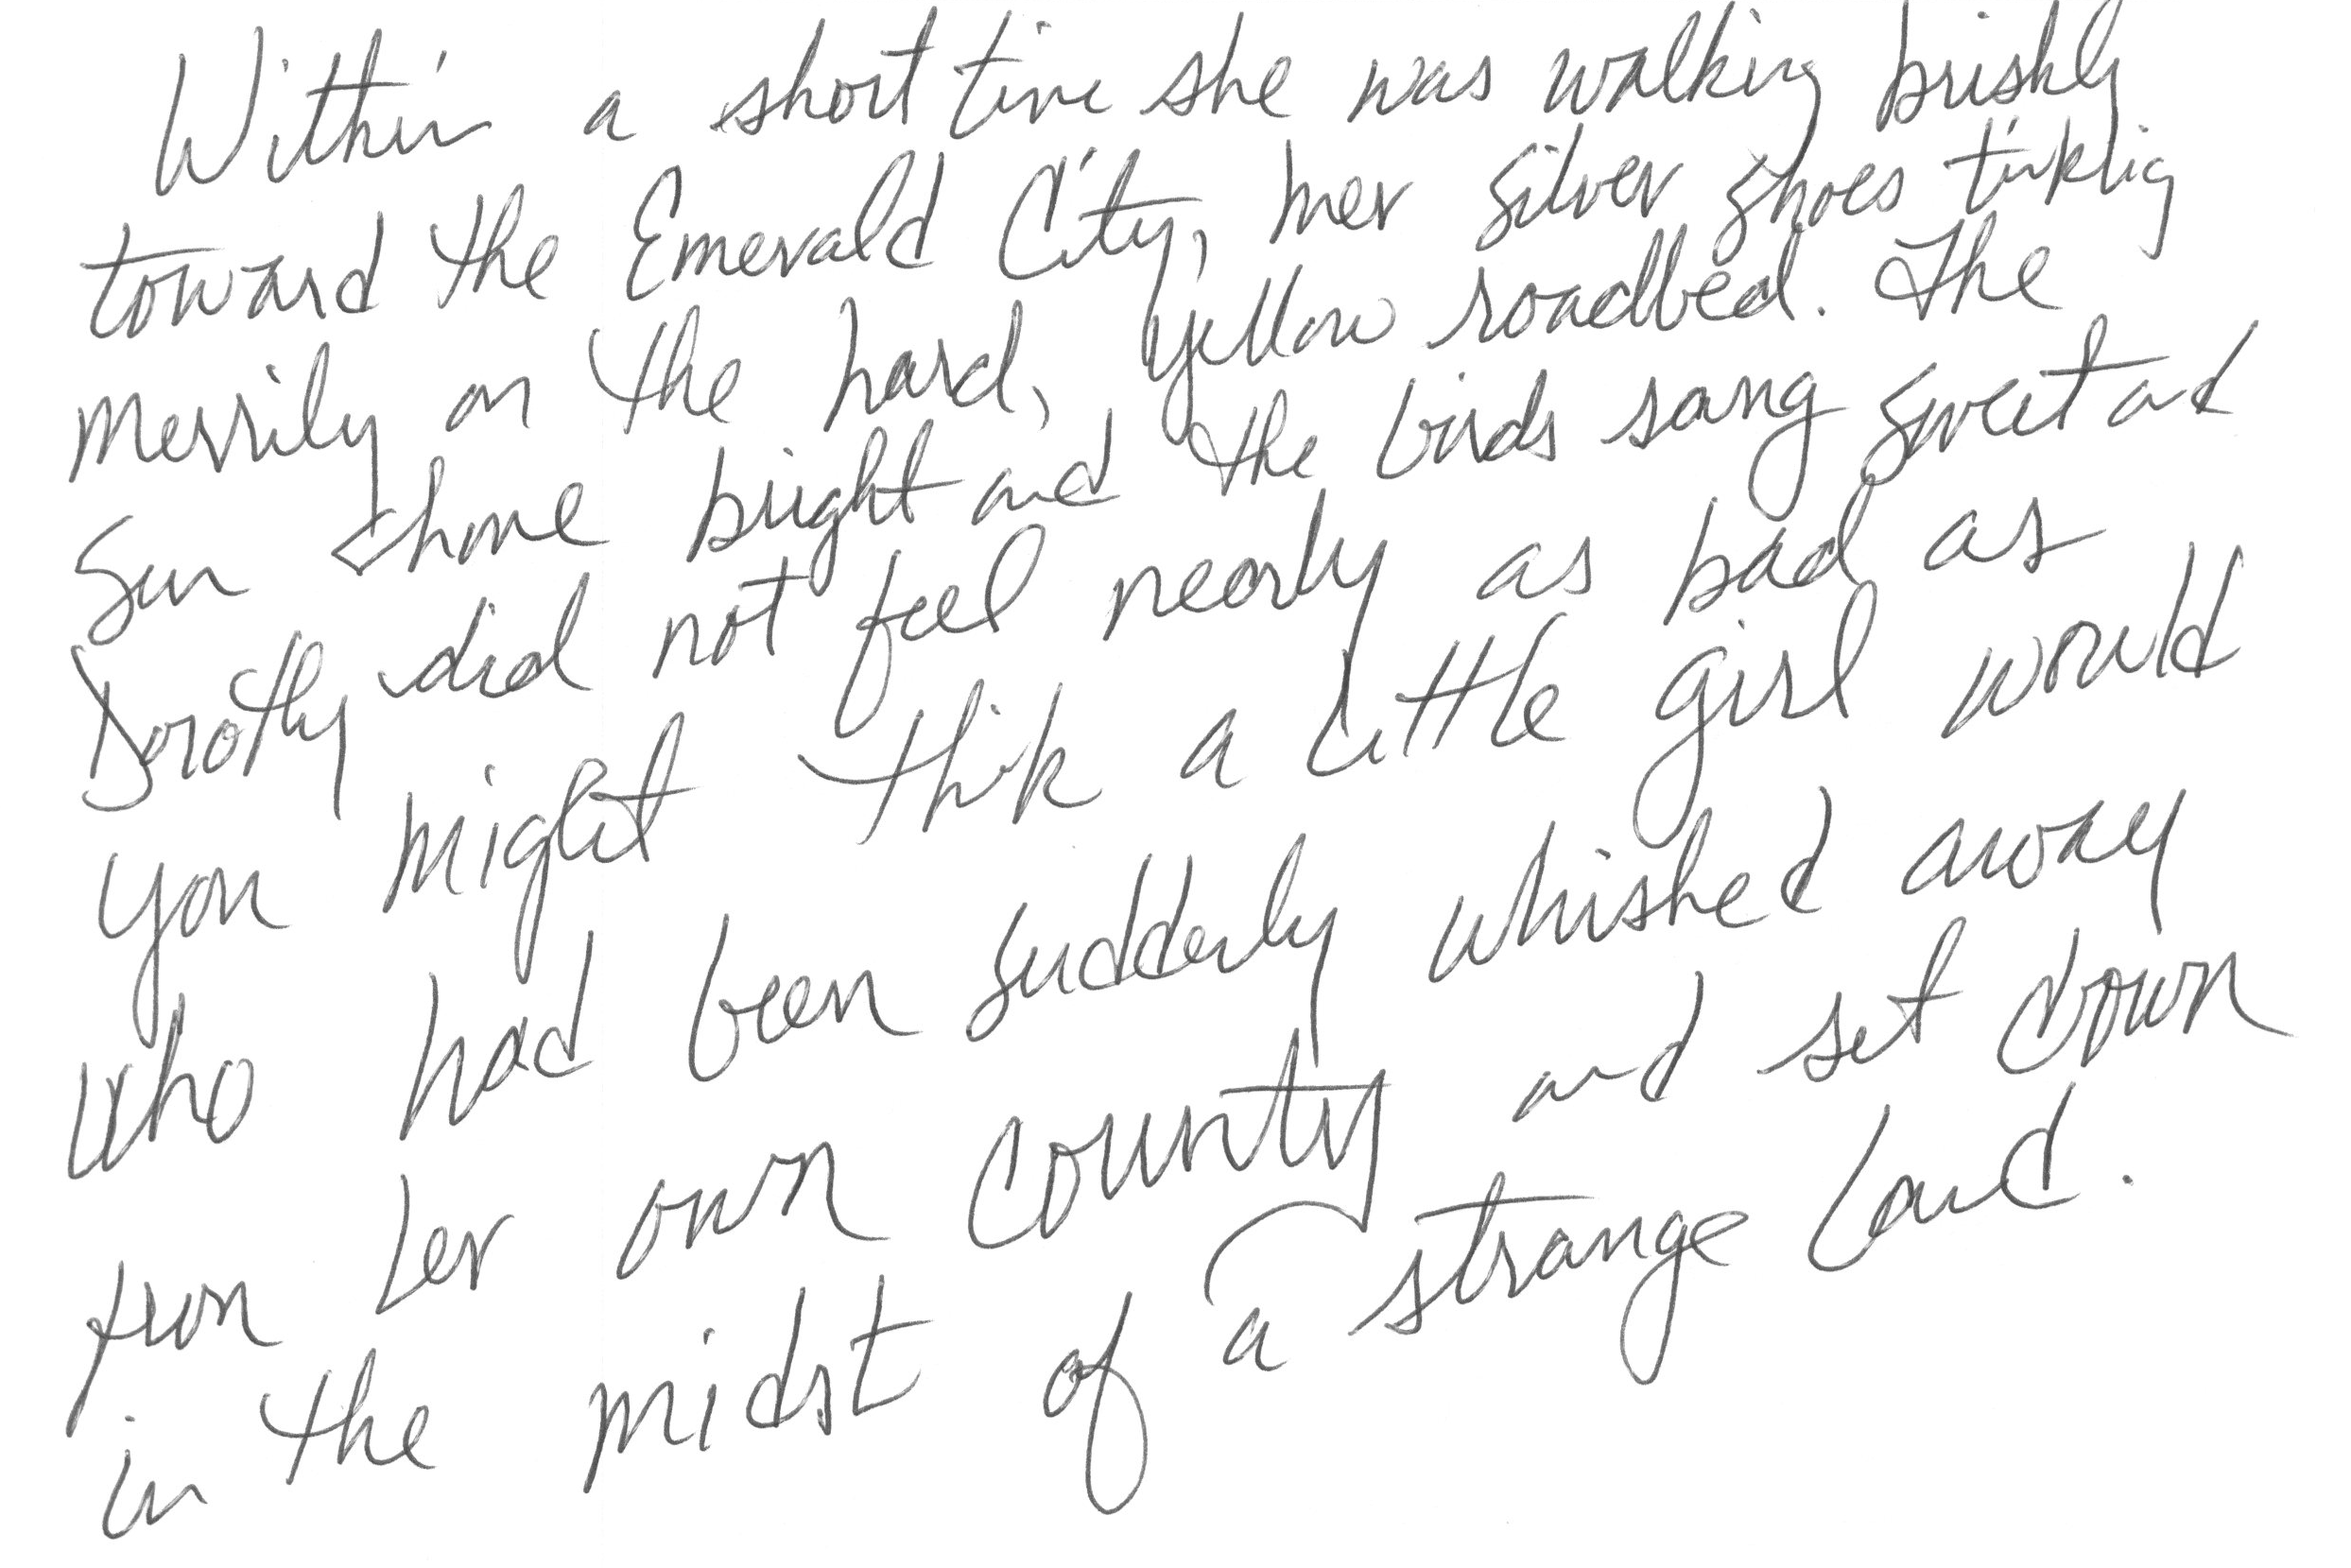 Within a short time she was walking briskly
toward the Emerald City, her silver shoes tinkling
merrily on the hard, yellow roadbed. The
sun shone bright and the birds sang sweet and
Dorothy did not feel nearly as bad as
you might think a little girl would
who had been suddenly whished away
from her own country and set down
in the midst of a strange land.